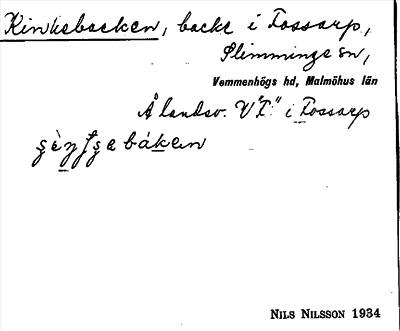 Kinkebacken, backe i Fossarp,
Slimminge sn,
Vemmenhögs hd, Malmöhus län
Å landsv. V "I." i Fossarp
NILS NILSSON 1934